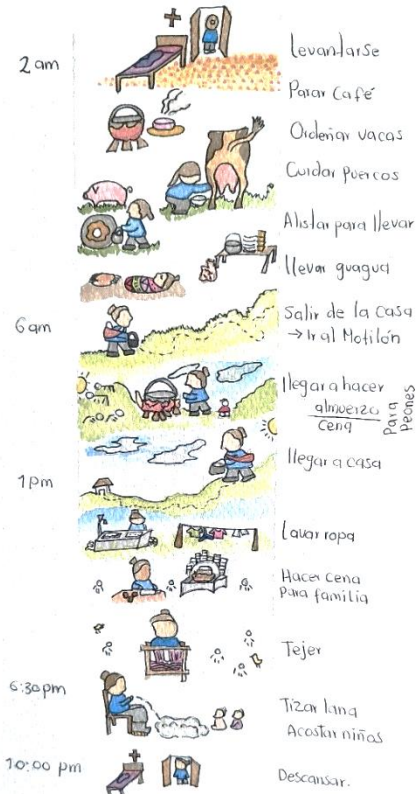 2 am
Levantarse
Parar Café
Ordeñar vacas
Cuidar Puercos
Alistar para llevar
llevar guagua
6 am
Salir de la casa
→ Ir al Motilón
llegar a hacer
almuerzo
cena
Para Peones
llegar a casa
1 pm
Lavar ropa
Hacer cena
Para familia
Tejer
6:30 pm
Tizar lana
Acostar niños
10:00 pm
Descansar.